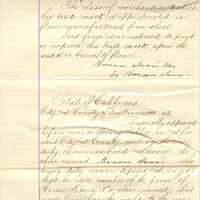 The class of merchandise to which
this trade mark is appropriated is
flour manufactured from wheat.
Said firm is accustomed to print
or impress this trade mark upon the
sack or barrel of flour.
Horace Davis &co
by Horace Davis
State of California
City and County of San Francisco SS.
Personally appeared
before me, a Notary Public in and for
said City and County, residing therein,
duly commissioned and sworn, the
above named Horace Davis who
being duly sworn deposes and says
that he is a member of the firm of
Horace Davis & Co above named; that